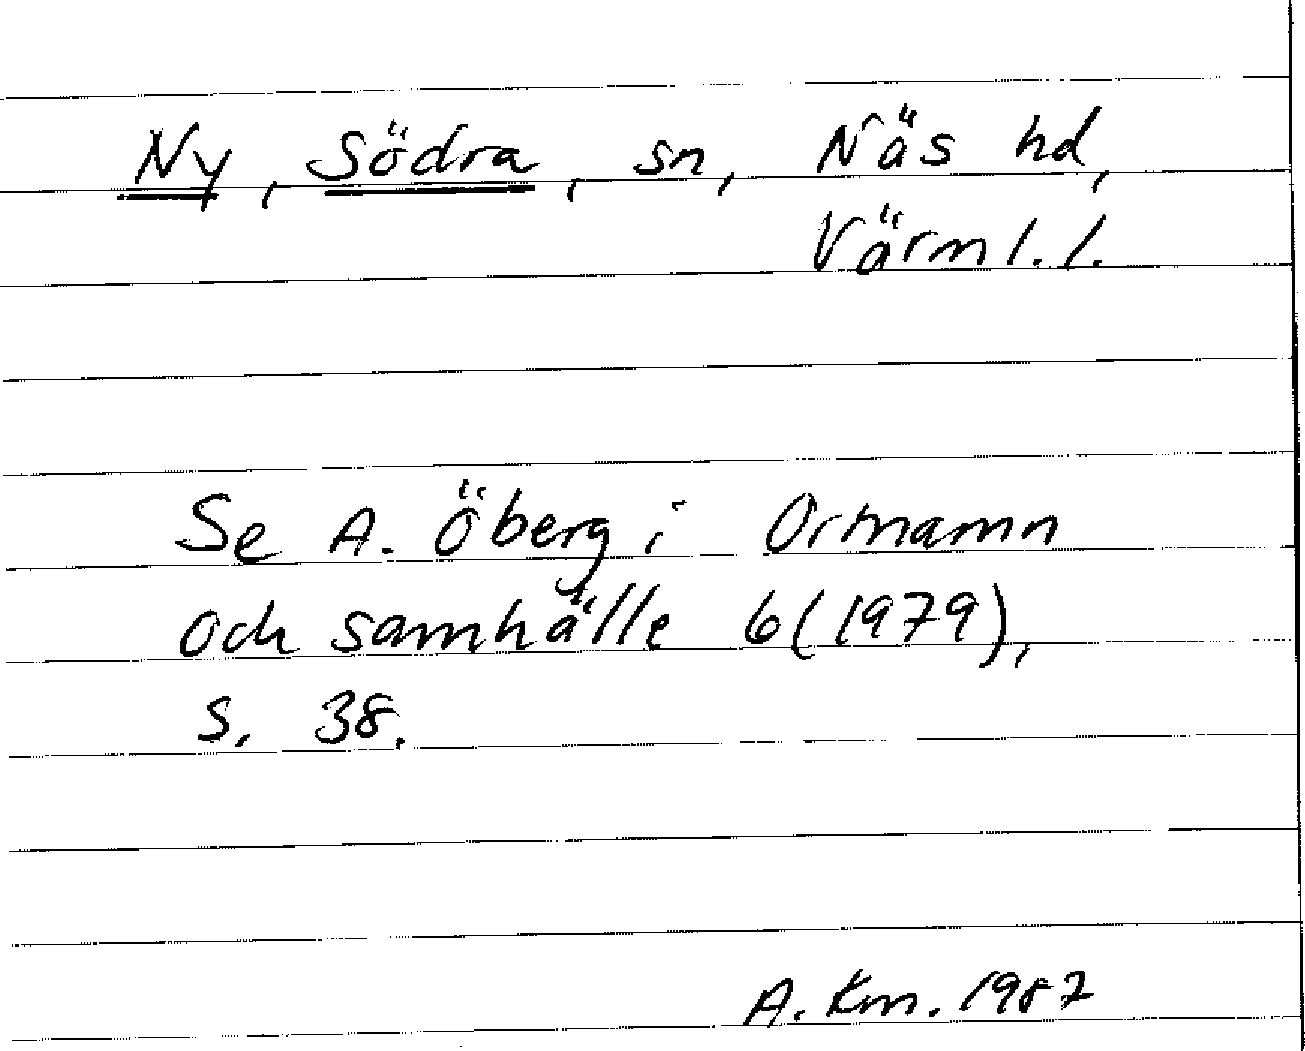 Ny, Södra, sn, Näs hd,
Värml. l.
Se A. Öberg i Ortnamn
och samhälle 6 (1979),
s. 38.
A. Km. 1987